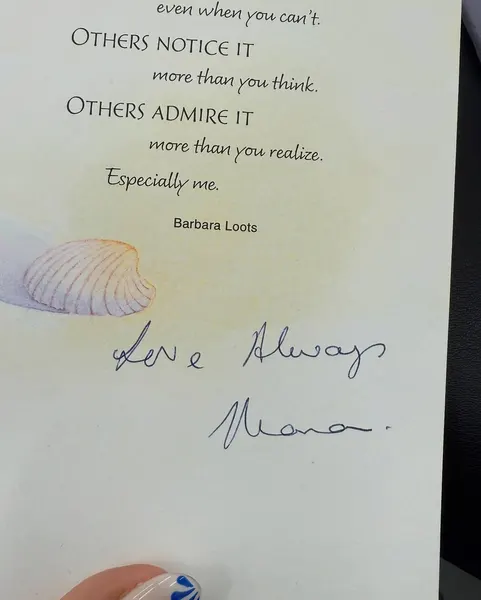 even when you can't.
OTHERS NOTICE IT
more than you think.
OTHERS ADMIRE IT
more than you realize.
Especially me.
Barbara Loots
Love Always